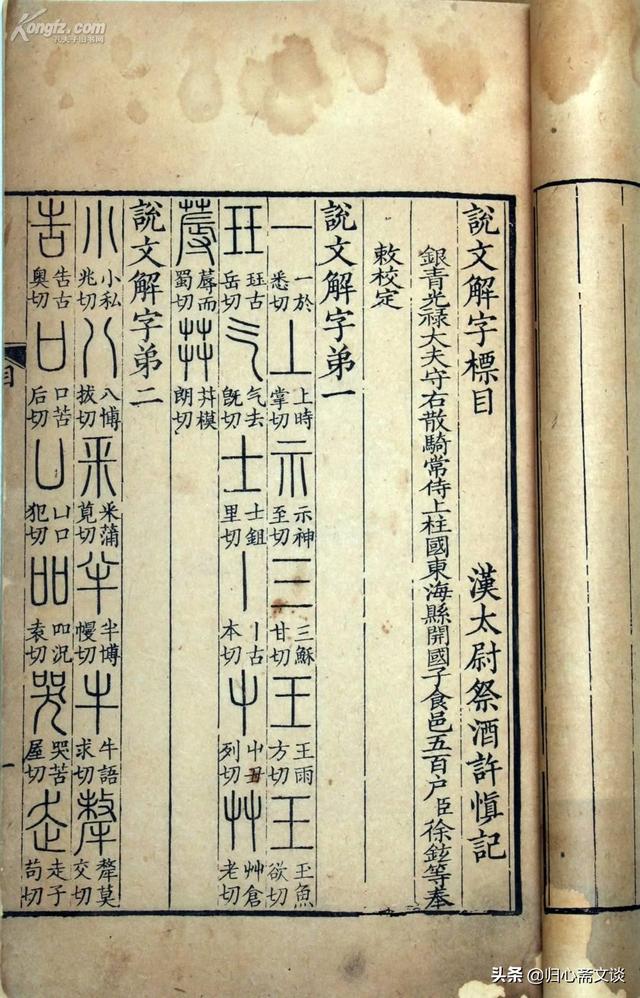 說文解字標目 漢太尉祭酒許慎記
銀青光祿大夫守右散騎常侍上柱國東海縣開國子食邑五百户臣徐鉉等奉
敕校定
說文解字弟一
一 一於悉切 丄 上時掌切 示 示神至切 三 三穌甘切 王 王雨方切 王 王魚欲切
玨 珏古岳切 气 气去旣切 士 士鉏里切 丨 丨古本切 屮 屮丑列切 艸 艸倉老切
蓐 蓐而蜀切 茻 茻模朗切
說文解字弟二
小 小私兆切 八 八博拔切 釆 釆蒲莧切 半 半博幔切 牛 牛語求切 犛 犛莫交切
告 告古奧切 口 口苦后切 凵 凵口犯切 吅 吅況袁切 哭 哭苦屋切 走 走子苟切
目
一
Kongfz.com
孔夫子旧书网
头条 @归心斋文谈